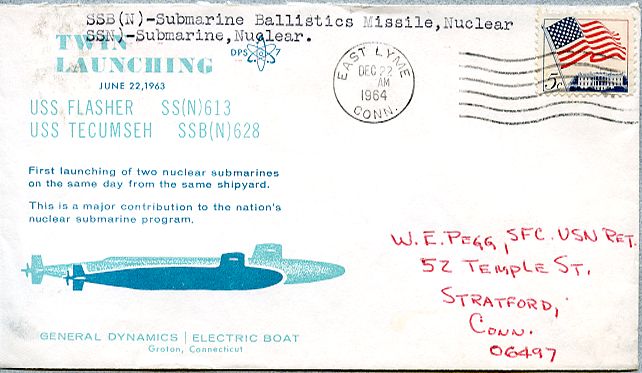 SSB(N)-Submarine Ballistics Missile,Nuclear
SSN)-Submarine,Nuclear.
TWIN
LAUNCHING
DPS 7
JUNE 22,1963
USS FLASHER SS(N)613
USS TECUMSEH SSB(N)628
First launching of two nuclear submarines
on the same day from the same shipyard.
This is a major contribution to the nation's
nuclear submarine program.
GENERAL DYNAMICS | ELECTRIC BOAT
Groton, Connecticut
EAST LYME
DEC 22
AM
1964
CONN.
5c
W. E. PEGG, SFC. USN RET.
52 TEMPLE ST.
STRATFORD,
CONN.
06497